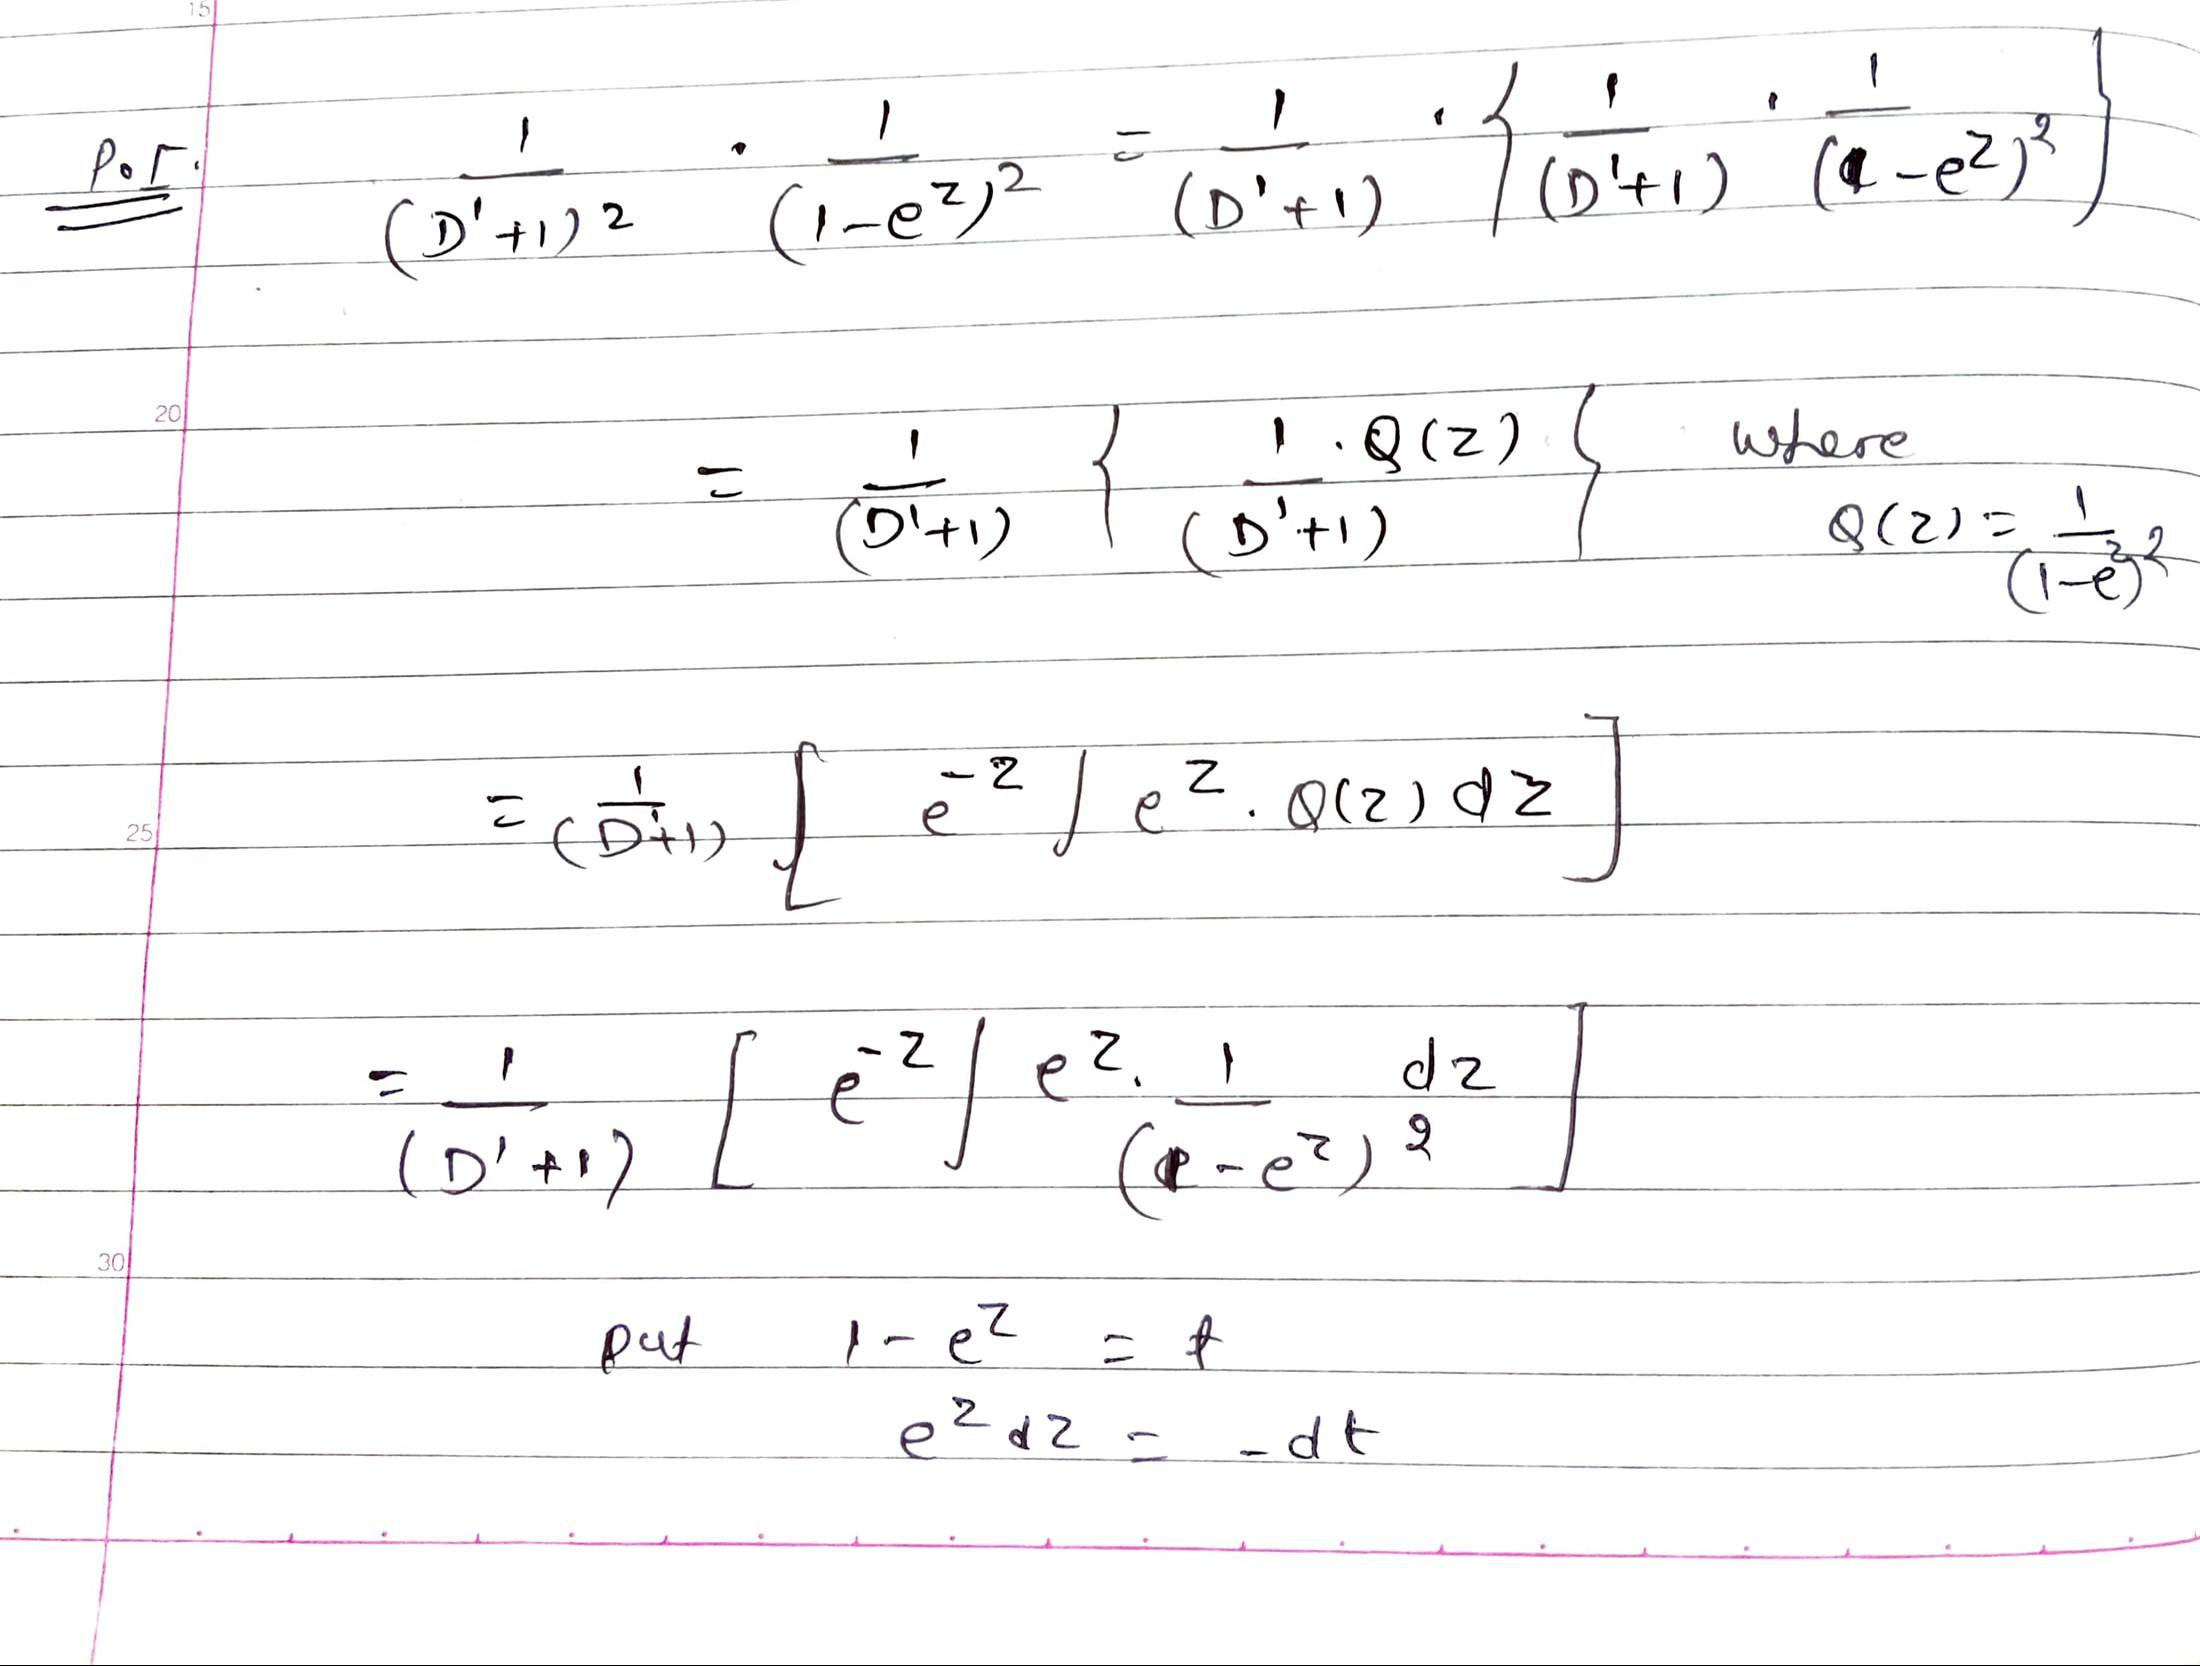 15
P.I. 1/(D'+1)2 . 1/(1-e^z)^2 = 1/(D'+1) . { 1/(D'+1) . 1/(1-e^z)^2 }
20
= 1/(D'+1) { 1/(D'+1) . Q(z) } where
Q(z) = 1/(1-e^z)^2
25
= 1/(D'+1) [ e^-z ∫ e^z . Q(z) dz ]
= 1/(D'+1) [ e^-z ∫ e^z . 1/(1-e^z)^2 dz ]
30
put 1 - e^z = t
e^z dz = -dt